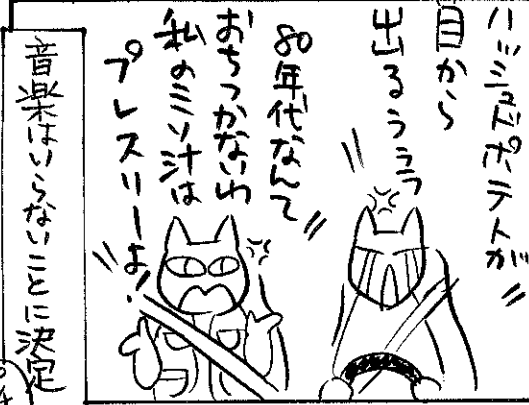 ハッシュドポテトが
目から
出るぅぅぅ
80年代なんて
おちつかないわ
私のミソ汁は
プレスリーよ!
音楽はいらないことに決定